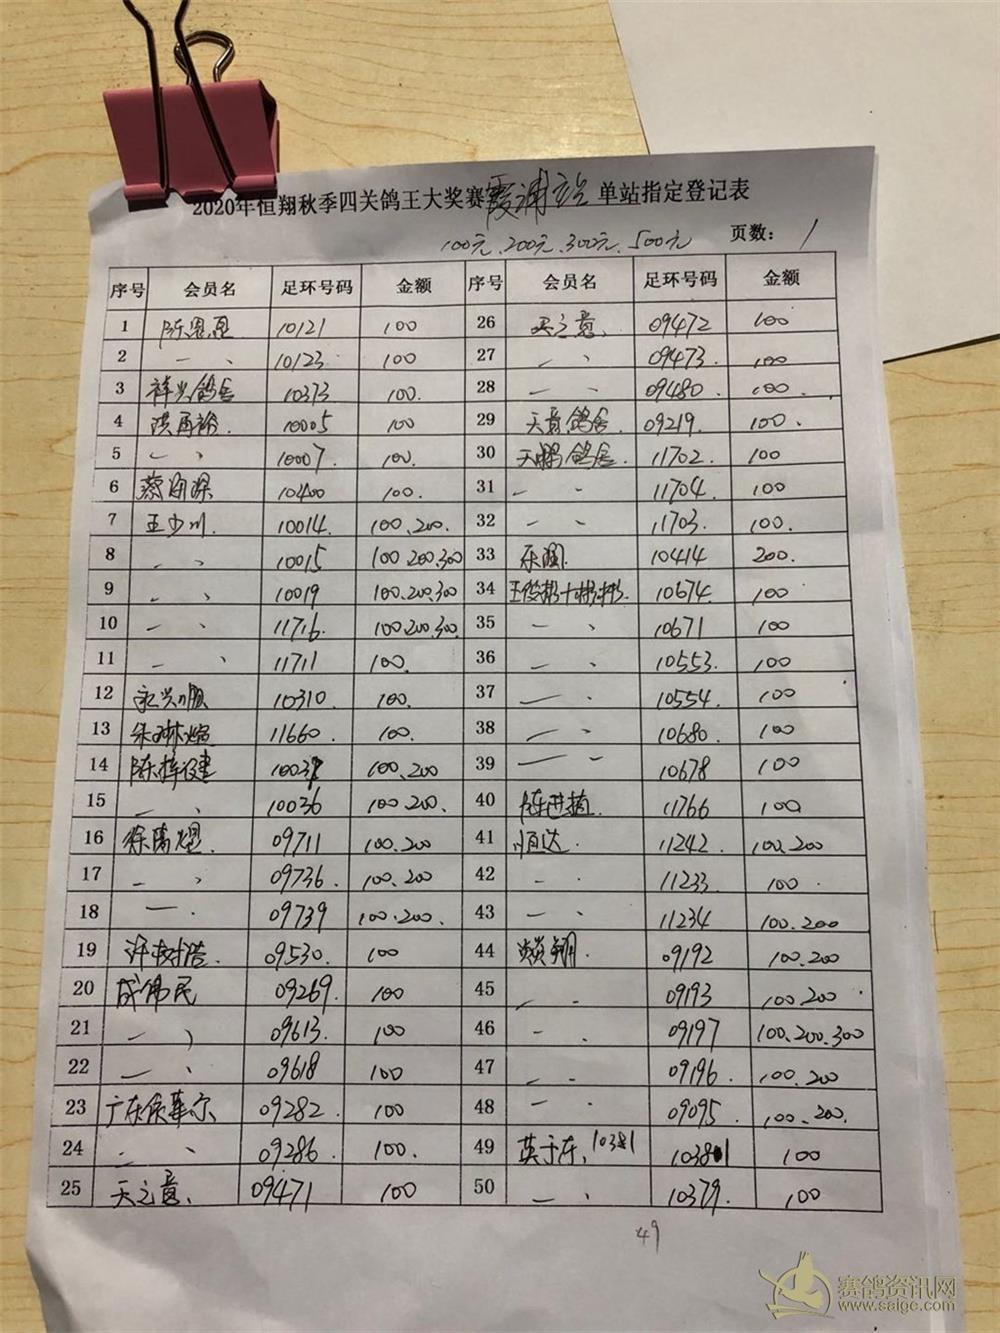 2020年恒翔秋季四关鸽王大奖赛霞浦站 单站指定登记表
100元、200元、300元、500元 页数： 1
序号 会员名 足环号码 金额 序号 会员名 足环号码 金额
1 陈恩恩 10121 100 26 天之意、 09472 100
2 一 、 10123. 100 27 一 、 09473. 100
3 祥兴鸽舍 10373 100. 28 一 、 09480. 100.
4 洪再裕. 10005 100 29 天意鸽舍 09219. 100.
5 一 、 10007. 100. 30 天鹏鸽舍. 11702. 100
6 蔡海深 10400 100. 31 、 、 11704. 100
7 王少川. 10014. 100、200. 32 、 、 11703. 100.
8 一 、 10015 100、200、300 33 乐翔. 10414 200.
9 一 、 10019 100、200、300 34 10674. 100
10 一 、 11716. 100、200、300 35 一 、 10671 100
11 一 、 11711 100. 36 一 、 10553. 100
12 永兴顺 10310 100. 37 一 、 10554. 100
13 朱琳煊 11660 100. 38 一 、 10680. 100
14 陈梓建 100、200 39 一 、 10678 100
15 一 、 10036 100、200. 40 陈进植 11766 100
16 徐禹煜. 09711 100、200 41 恒达. 11242. 100、200
17 一 、 09736. 100、200 42 一 . 11233 100
18 一 . 09739 100、200. 43 一 、 11234 100、200
19 许树浩. 09530. 100 44 焱翔 09192 100、200
20 成伟民 09269. 100 45 、 . 09193 100、200
21 一 、 09613. 100 46 一 . 09197 100、200、300
22 一 、 09618 100 47 一 . 09196. 100、200
23 广东侯华尔 09282. 100 48 一 、 09095. 100、200.
24 一 、 09286 100. 49 英于东、10381 10381 100
25 天之意、 09471 100 50 一 、 10379. 100
49
赛鸽资讯网
www.saige.com